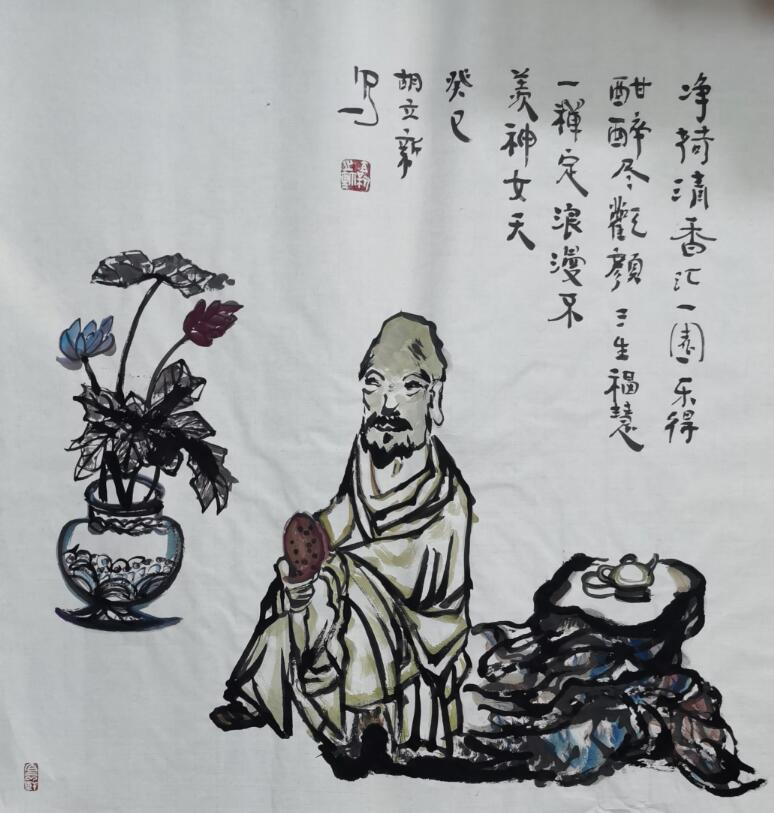 净荷清香汇一園乐得
酣醉尽歡顏三生福慧
一禪定浪漫不
羡神女天
癸巳
胡立新
写